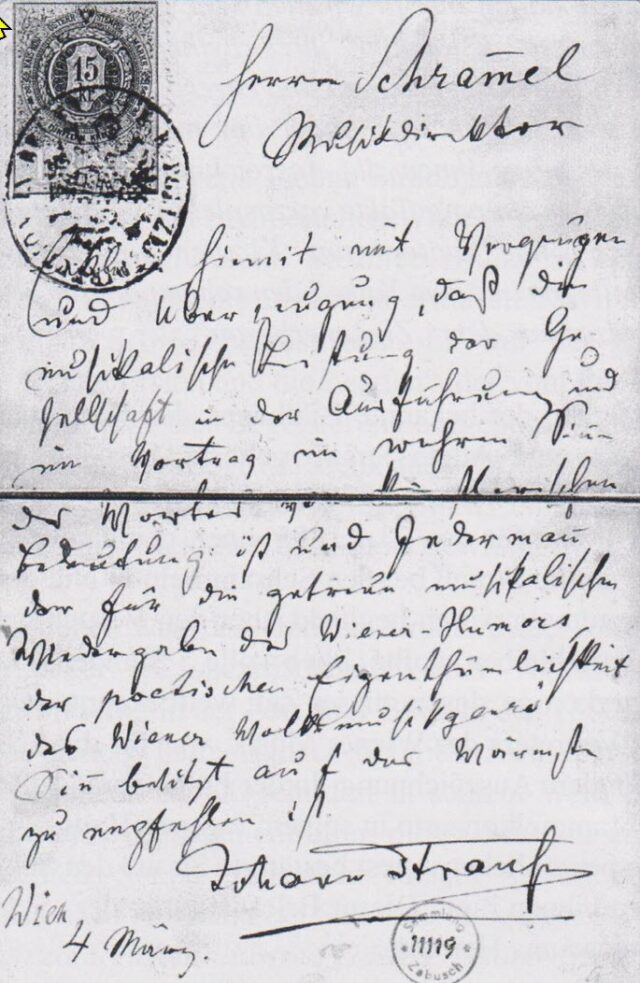 15
Herrn Schram̅el
Musikdirektor
hiemit mit Vergnügen
und Überzeugung, daß die
musikalische Leistung der Ge-
sellschaft in der Ausführung und
im Vortrag im wahren Sinne
der Wortes von künstlerischer
Bedeutung ist und Jederman̅
der für die getreue musikalischen
Wiedergabe des Wiener-Humors,
der poetischen Eigenthümlichkeit
des Wiener Volksmusikgenre
Sin̅ besitzt auf das Wärmste
zu empfehlen ist
Johann Strauß
Wien
4 März
Sammlung
* 11119 *
Zabusch